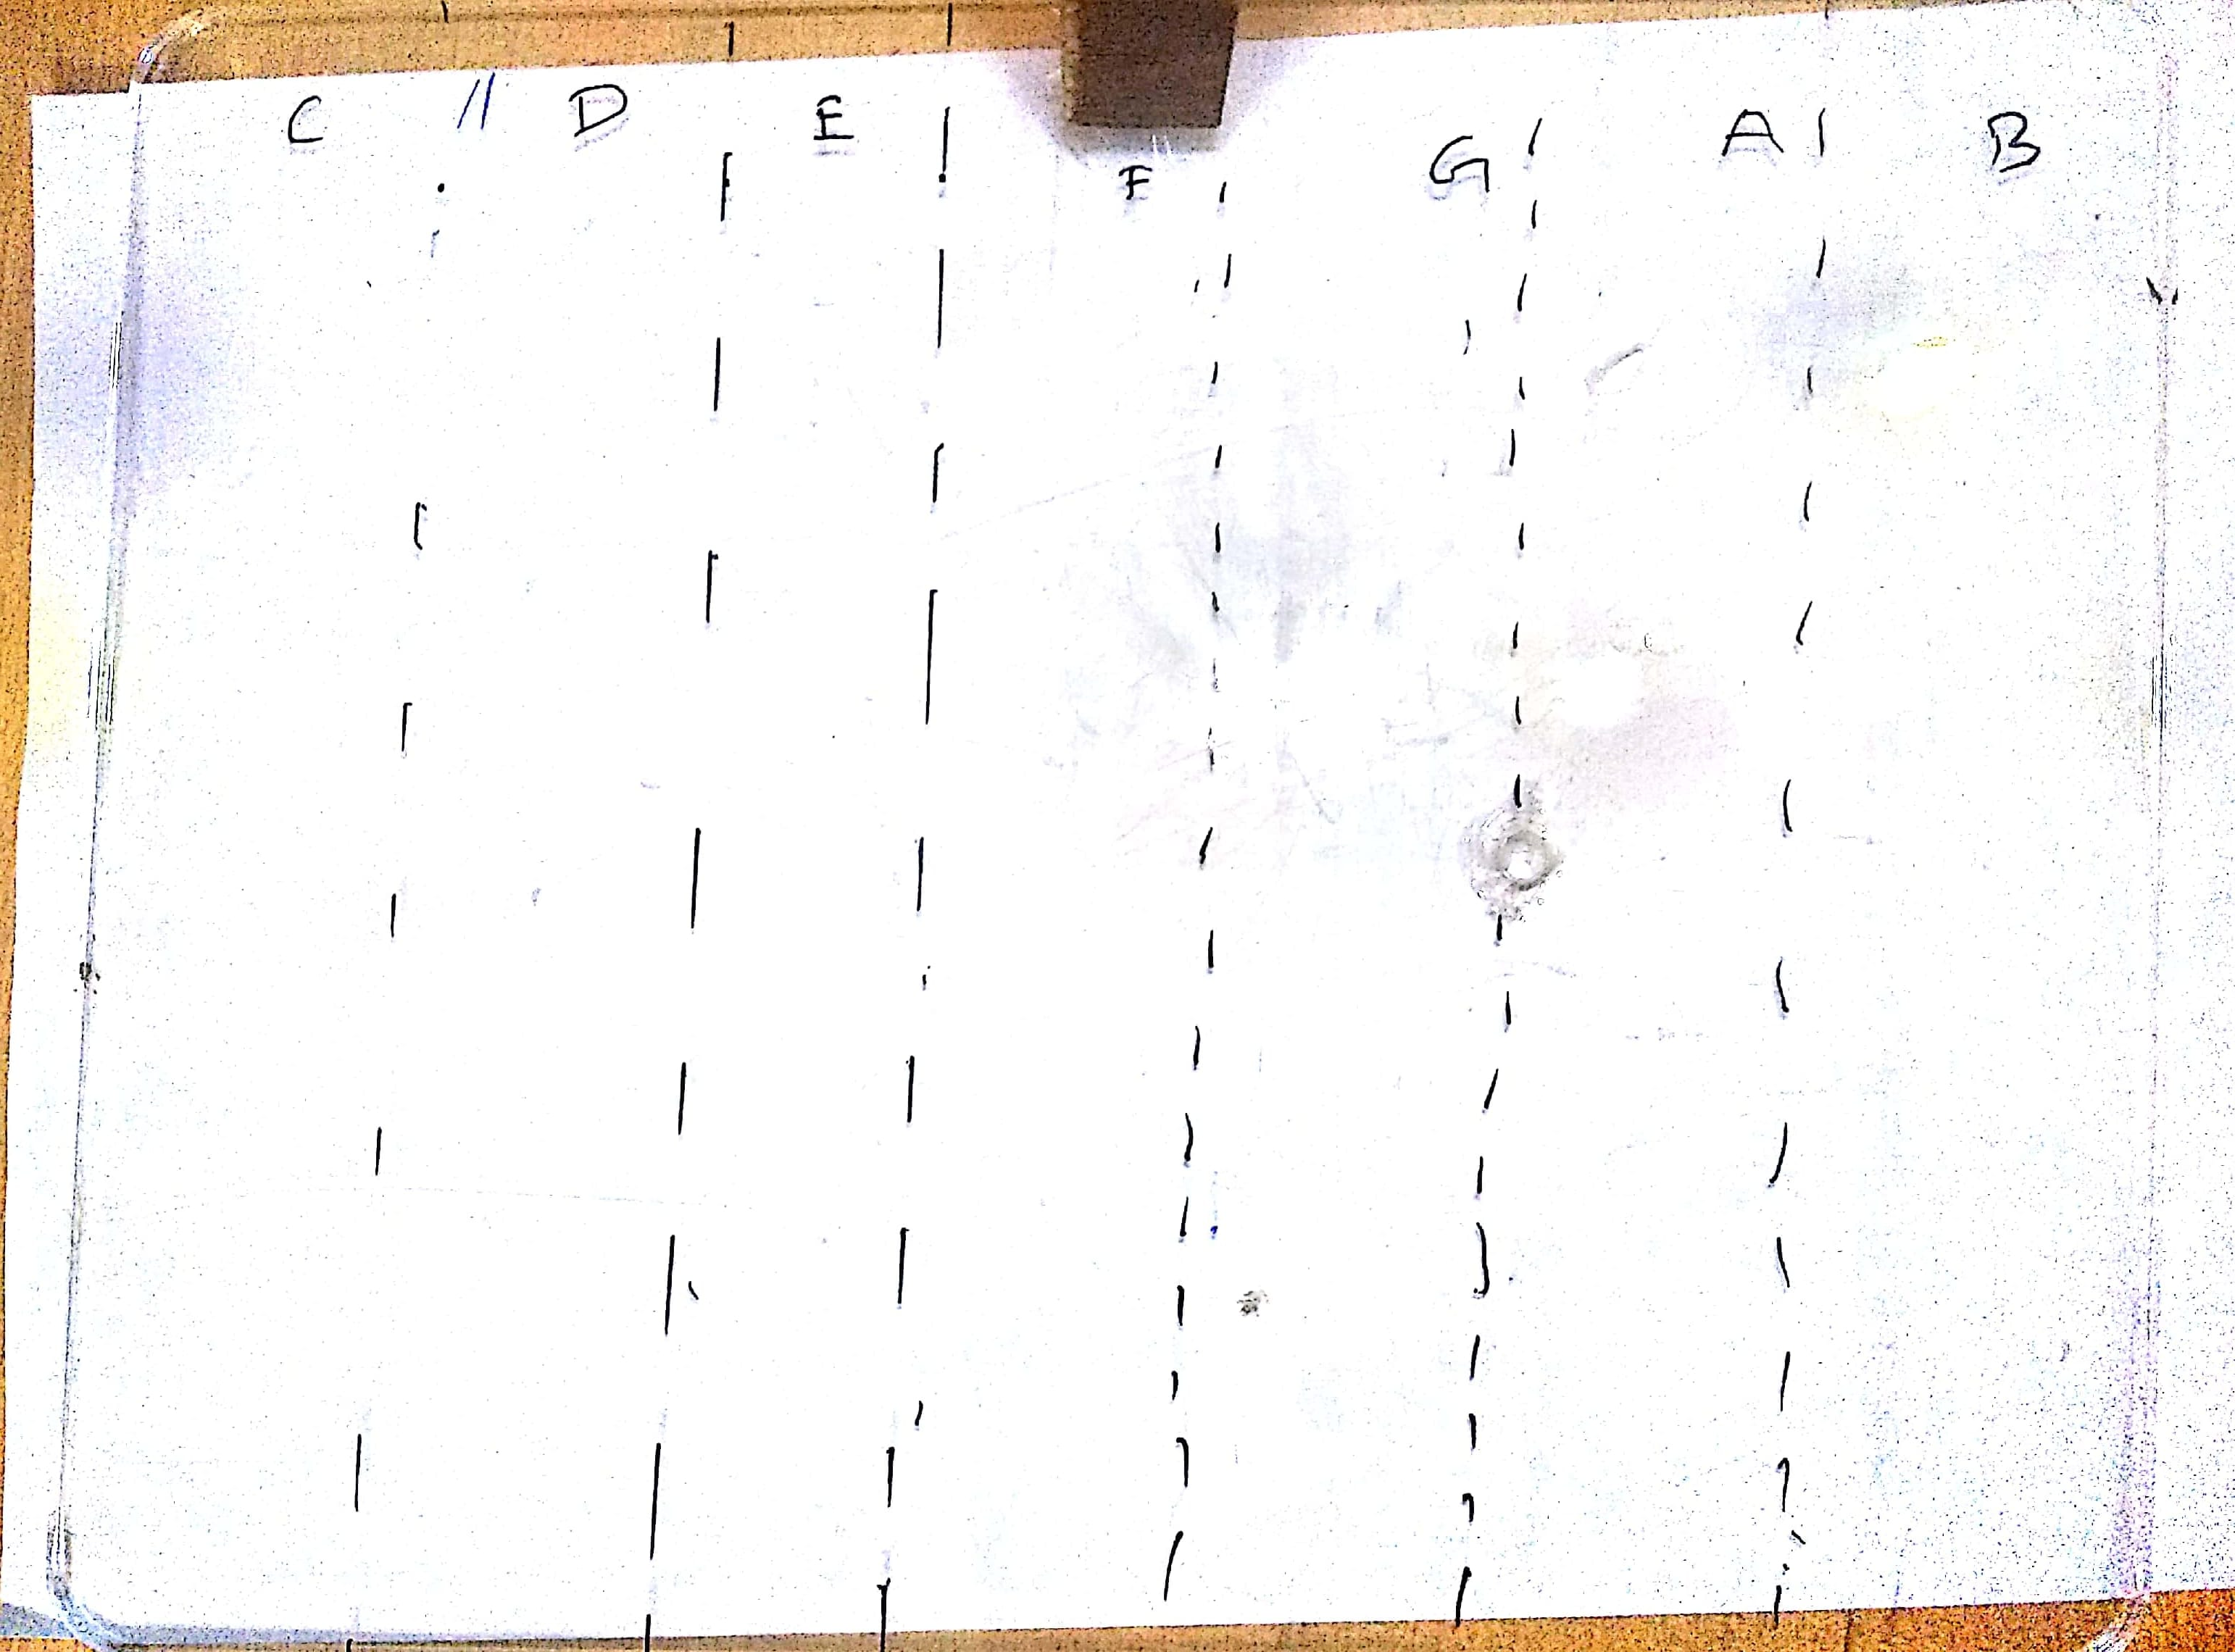 C D E F G A B